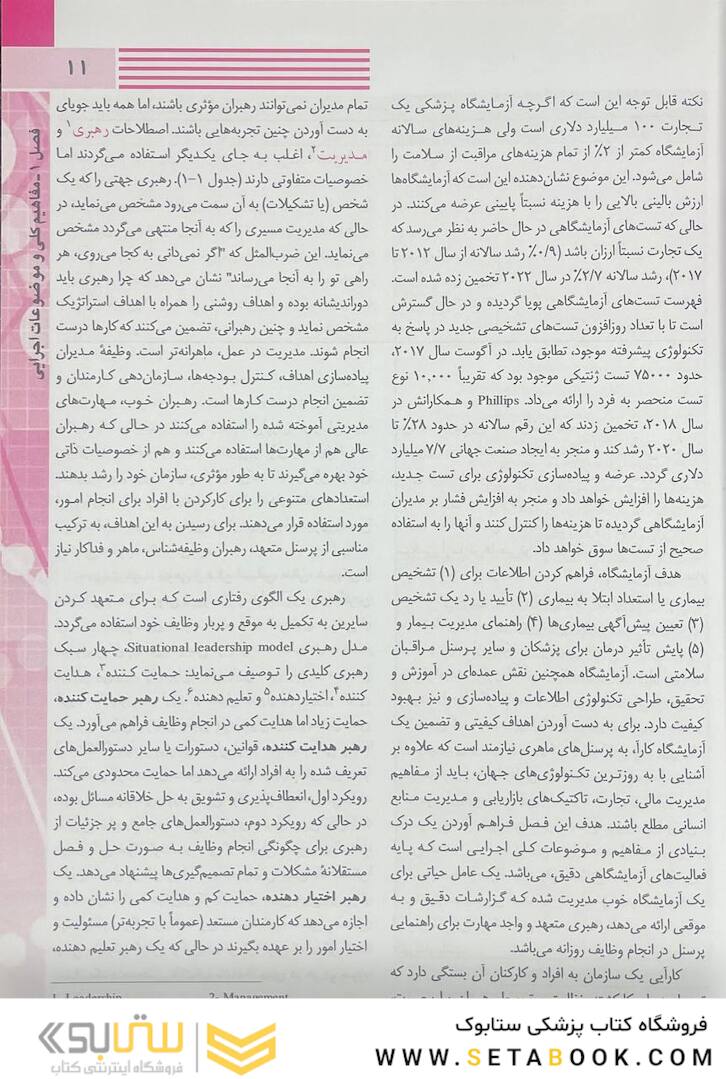 ۱۱
فصل ۱ - مفاهیم کلی و موضوعات اجرایی
نکته قابل توجه این است که اگرچه آزمایشگاه پزشکی یک
تجارت ۱۰۰ میلیارد دلاری است ولی هزینه‌های سالانه
آزمایشگاه کمتر از ۲٪ از تمام هزینه‌های مراقبت از سلامت را
شامل می‌شود. این موضوع نشان‌دهنده این است که آزمایشگاه‌ها
ارزش بالینی بالایی را با هزینه نسبتاً پایینی عرضه می‌کنند. در
حالی که تست‌های آزمایشگاهی در حال حاضر به نظر می‌رسد که
یک تجارت نسبتاً ارزان باشد (۰/۹٪ رشد سالانه از سال ۲۰۱۲ تا
۲۰۱۷)، رشد سالانه ۲/۷٪ در سال ۲۰۲۲ تخمین زده شده است.
فهرست تست‌های آزمایشگاهی پویا گردیده و در حال گسترش
است تا با تعداد روزافزون تست‌های تشخیصی جدید در پاسخ به
تکنولوژی پیشرفته موجود، تطابق یابد. در آگوست سال ۲۰۱۷،
حدود ۷۵۰۰۰ تست ژنتیکی موجود بود که تقریباً ۱۰,۰۰۰ نوع
تست منحصر به فرد را ارائه می‌داد. Phillips و همکارانش در
سال ۲۰۱۸، تخمین زدند که این رقم سالانه در حدود ۲۸٪ تا
سال ۲۰۲۰ رشد کند و منجر به ایجاد صنعت جهانی ۷/۷ میلیارد
دلاری گردد. عرضه و پیاده‌سازی تکنولوژی برای تست جدید،
هزینه‌ها را افزایش خواهد داد و منجر به افزایش فشار بر مدیران
آزمایشگاهی گردیده تا هزینه‌ها را کنترل کنند و آنها را به استفاده
صحیح از تست‌ها سوق خواهد داد.
هدف آزمایشگاه، فراهم کردن اطلاعات برای (۱) تشخیص
بیماری یا استعداد ابتلا به بیماری (۲) تأیید یا رد یک تشخیص
(۳) تعیین پیش‌آگهی بیماری‌ها (۴) راهنمای مدیریت بیمار و
(۵) پایش تأثیر درمان برای پزشکان و سایر پرسنل مراقبان
سلامتی است. آزمایشگاه همچنین نقش عمده‌ای در آموزش و
تحقیق، طراحی تکنولوژی اطلاعات و پیاده‌سازی و نیز بهبود
کیفیت دارد. برای به دست آوردن اهداف کیفیتی و تضمین یک
آزمایشگاه کارآ، به پرسنل‌های ماهری نیازمند است که علاوه بر
آشنایی با به روزترین تکنولوژی‌های جهان، باید از مفاهیم
مدیریت مالی، تجارت، تاکتیک‌های بازاریابی و مدیریت منابع
انسانی مطلع باشند. هدف این فصل فراهم آوردن یک درک
بنیادی از مفاهیم و موضوعات کلی اجرایی است که پایه
فعالیت‌های آزمایشگاهی دقیق، می‌باشد. یک عامل حیاتی برای
یک آزمایشگاه خوب مدیریت شده که گزارشات دقیق و به
موقعی ارائه می‌دهد، رهبری متعهد و واجد مهارت برای راهنمایی
پرسنل در انجام وظایف روزانه می‌باشد.
کارآیی یک سازمان به افراد و کارکنان آن بستگی دارد که
تمام مدیران نمی‌توانند رهبران مؤثری باشند، اما همه باید جویای
به دست آوردن چنین تجربه‌هایی باشند. اصطلاحات رهبری۱ و
مدیریت۲، اغلب به جای یکدیگر استفاده می‌گردند اما
خصوصیات متفاوتی دارند (جدول ۱-۱). رهبری جهتی را که یک
شخص (یا تشکیلات) به آن سمت می‌رود مشخص می‌نماید، در
حالی که مدیریت مسیری را که به آنجا منتهی می‌گردد مشخص
می‌نماید. این ضرب‌المثل که "اگر نمی‌دانی به کجا می‌روی، هر
راهی تو را به آنجا می‌رساند" نشان می‌دهد که چرا رهبری باید
دوراندیشانه بوده و اهداف روشنی را همراه با اهداف استراتژیک
مشخص نماید و چنین رهبرانی، تضمین می‌کنند که کارها درست
انجام شوند. مدیریت در عمل، ماهرانه‌تر است. وظیفهٔ مدیران
پیاده‌سازی اهداف، کنترل بودجه‌ها، سازمان‌دهی کارمندان و
تضمین انجام درست کارها است. رهبران خوب، مهارت‌های
مدیریتی آموخته شده را استفاده می‌کنند در حالی که رهبران
عالی هم از مهارت‌ها استفاده می‌کنند و هم از خصوصیات ذاتی
خود بهره می‌گیرند تا به طور مؤثری، سازمان خود را رشد بدهند.
استعدادهای متنوعی را برای کارکردن با افراد برای انجام امور،
مورد استفاده قرار می‌دهند. برای رسیدن به این اهداف، به ترکیب
مناسبی از پرسنل متعهد، رهبران وظیفه‌شناس، ماهر و فداکار نیاز
است.
رهبری یک الگوی رفتاری است که برای متعهد کردن
سایرین به تکمیل به موقع و پربار وظایف خود استفاده می‌گردد.
مدل رهبری Situational leadership model، چهار سبک
رهبری کلیدی را توصیف می‌نماید: حمایت کننده۳، هدایت
کننده۴، اختیاردهنده۵ و تعلیم دهنده۶. یک رهبر حمایت کننده،
حمایت زیاد اما هدایت کمی در انجام وظایف فراهم می‌آورد. یک
رهبر هدایت کننده، قوانین، دستورات یا سایر دستورالعمل‌های
تعریف شده را به افراد ارائه می‌دهد اما حمایت محدودی می‌کند.
رویکرد اول، انعطاف‌پذیری و تشویق به حل خلاقانه مسائل بوده،
در حالی که رویکرد دوم، دستورالعمل‌های جامع و پر جزئیات از
رهبری برای چگونگی انجام وظایف به صورت حل و فصل
مستقلانهٔ مشکلات و تمام تصمیم‌گیری‌ها پیشنهاد می‌دهد. یک
رهبر اختیار دهنده، حمایت کم و هدایت کمی را نشان داده و
اجازه می‌دهد که کارمندان مستعد (عموماً با تجربه‌تر) مسئولیت و
اختیار امور را بر عهده بگیرند در حالی که یک رهبر تعلیم دهنده،
1- Leadership
2- Management
فروشگاه کتاب پزشکی ستابوک
WWW.SETABOOK.COM
ستابوک
فروشگاه اینترنتی کتاب